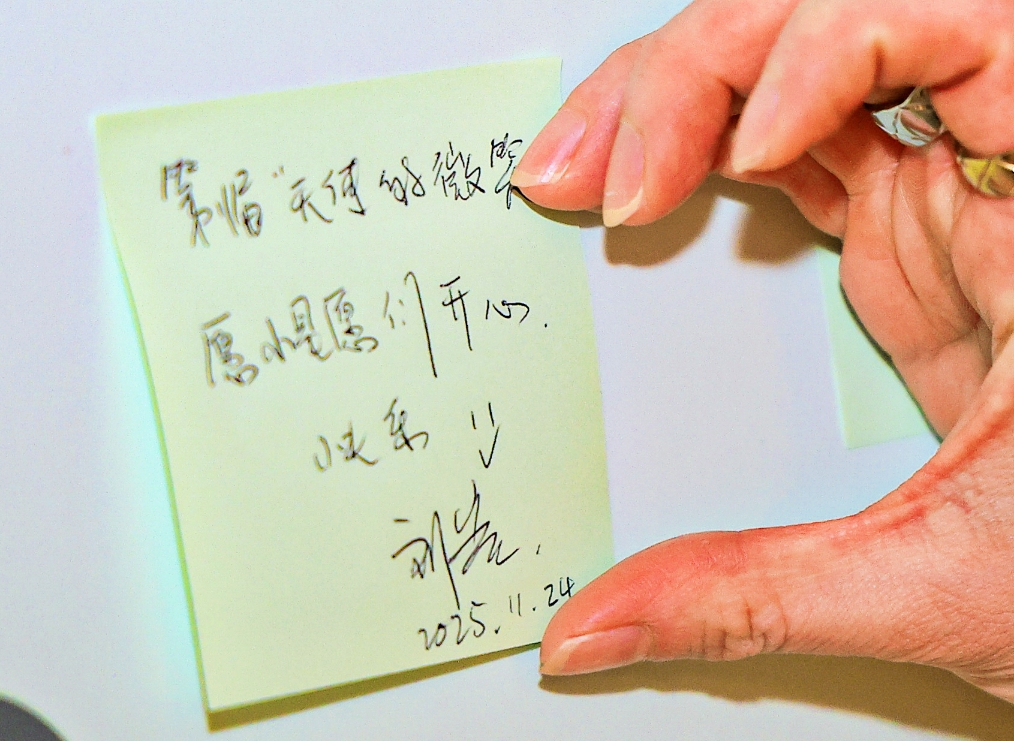 "天使的微笑
愿小星愿们开心.
快乐
刘岩.
2025.11.24